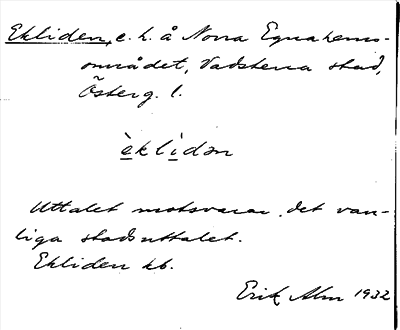 Ekliden, e. h. å Norra Egnahems-
området, Vadstena stad,
Österg. l.
èklidən
Uttalet motsvarar det van-
liga stadsuttalet.
Ekliden kb.
Erik Alm 1932